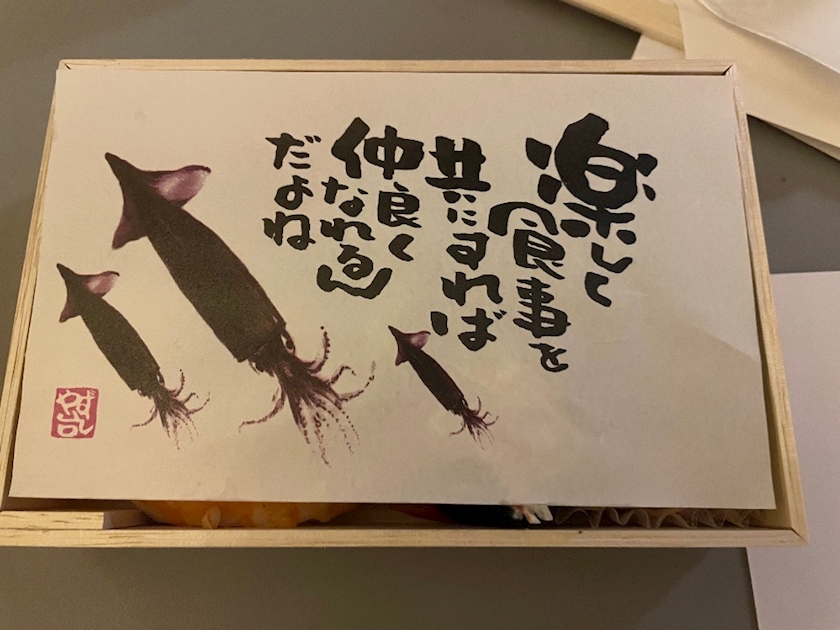 楽しく
食事を
共にすれば
仲良く
なれるん
だよね